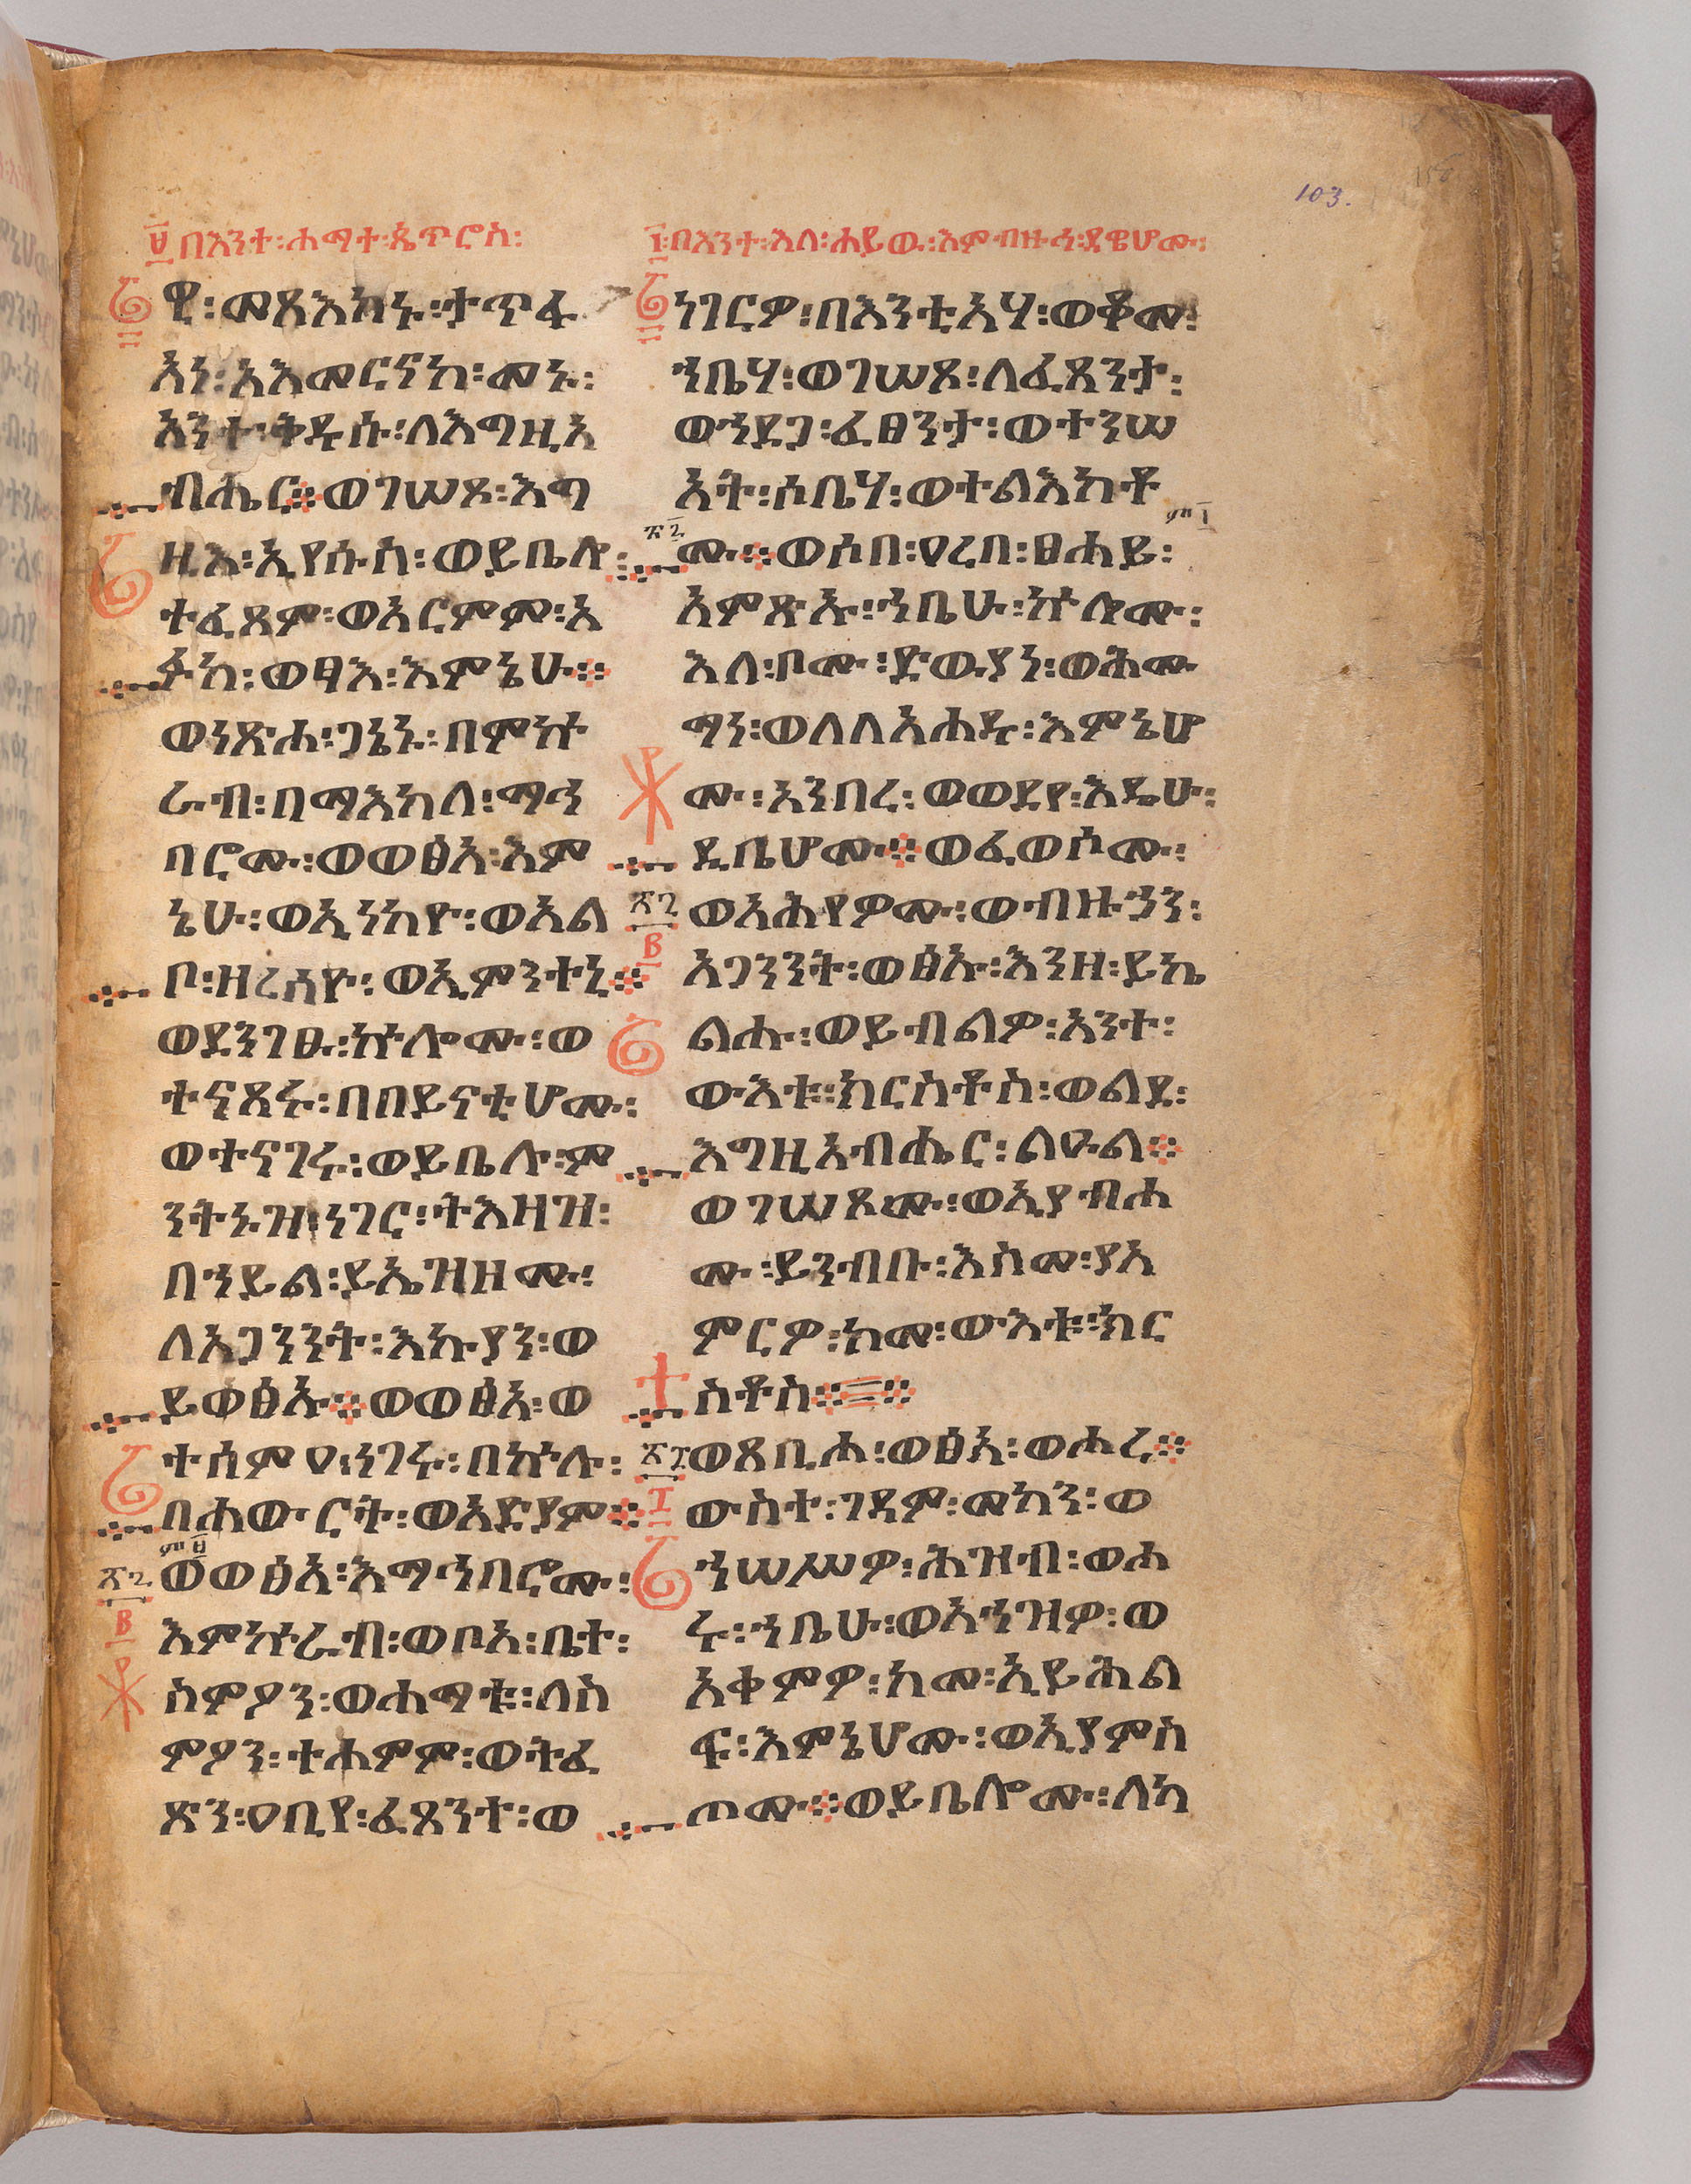 103.
፱ በእንተ፡ሐማተ፡ጴጥሮስ፡
ዊ፡መጻእክኑ፡ታጥፋ
አነ፡አአመርናከ፡መኑ፡
አንተ፡ቅዱሱ፡ለእግዚአ
ብሔር፨ወገሠጾ፡እግ
ዚእ፡ኢየሱስ፡ወይቤሎ፡
ተፈጸም፡ወአርምም፡አ
ፉከ፡ወፃእ፡እምኔሁ፨
ወነጽሖ፡ጋኔኑ፡በምኵ
ራብ፡በማእከለ፡ማኅ
በሮሙ፡ወወፅአ፡እም
ኔሁ፡ወኢነከዮ፡ወአል
ቦ፡ዘረሰዮ፡ወኢምንተኒ፨
ወደንገፁ፡ኵሎሙ፡ወ
ተናጸሩ፡በበይናቲሆሙ፡
ወተናገሩ፡ወይቤሉ፡ም
ንትኑዝ፡ነገር፡ትእዛዝ፡
በኀይል፡ይኤዝዘሙ፡
ለአጋንንት፡እኩያን፡ወ
ይወፅኡ፨ወወፅአ፡ወ
ተሰምዐ፡ነገሩ፡በኵሉ፡
በሐውርት፡ወአድያም፨
ወወፅአ፡እማኅበሮሙ፡
እምኵራብ፡ወቦአ፡ቤተ፡
ስምዖን፡ወሐማቱ፡ለስ
ምዖን፡ተሐምም፡ወትፈ
ጽን፡ዐቢየ፡ፈጸንተ፡ወ
፲፡በእንተ፡እለ፡ሐይዉ፡እምብዙኅ፡ደዌሆሙ፡
ነገርዎ፡በእንቲአሃ፡ወቆመ፡
ኀቤሃ፡ወገሠጾ፡ለፈጸንታ፡
ወኀደጋ፡ፈፀንታ፡ወተንሠ
አት፡ሶቤሃ፡ወተልእከቶ
ሙ፨ወሶበ፡ዐረበ፡ፀሐይ፡
አምጽኡ፡ኀቤሁ፡ኵሎሙ፡
እለ፡ቦሙ፡ድውያነ፡ወሕሙ
ማነ፡ወለለአሐዱ፡እምኔሆ
ሙ፡አንበረ፡ወወደየ፡እዴሁ፡
ዲቤሆሙ፨ወፈወሶሙ፡
ወአሕየዎሙ፡ወብዙኃን፡
አጋንንት፡ወፅኡ፡እንዘ፡ይኬ
ልሑ፡ወይብልዎ፡አንተ፡
ውእቱ፡ክርስቶስ፡ወልደ፡
እግዚአብሔር፡ልዑል፨
ወገሠጾሙ፡ወኢያብሐ
ሙ፡ይንብቡ፡እስመ፡ያአ
ምርዎ፡ከመ፡ውእቱ፡ክር
ስቶስ፨፨
ወጸቢሖ፡ወፅአ፡ወሐረ፨
ውስተ፡ገዳም፡መካን፡ወ
ኀሠሥዎ፡ሕዝብ፡ወሐ
ሩ፡ኀቤሁ፡ወአኀዝዎ፡ወ
አቀምዎ፡ከመ፡ኢይሕል
ፍ፡እምኔሆሙ፡ወኢያምስ
ጦሙ፨ወይቤሎሙ፡ለካ